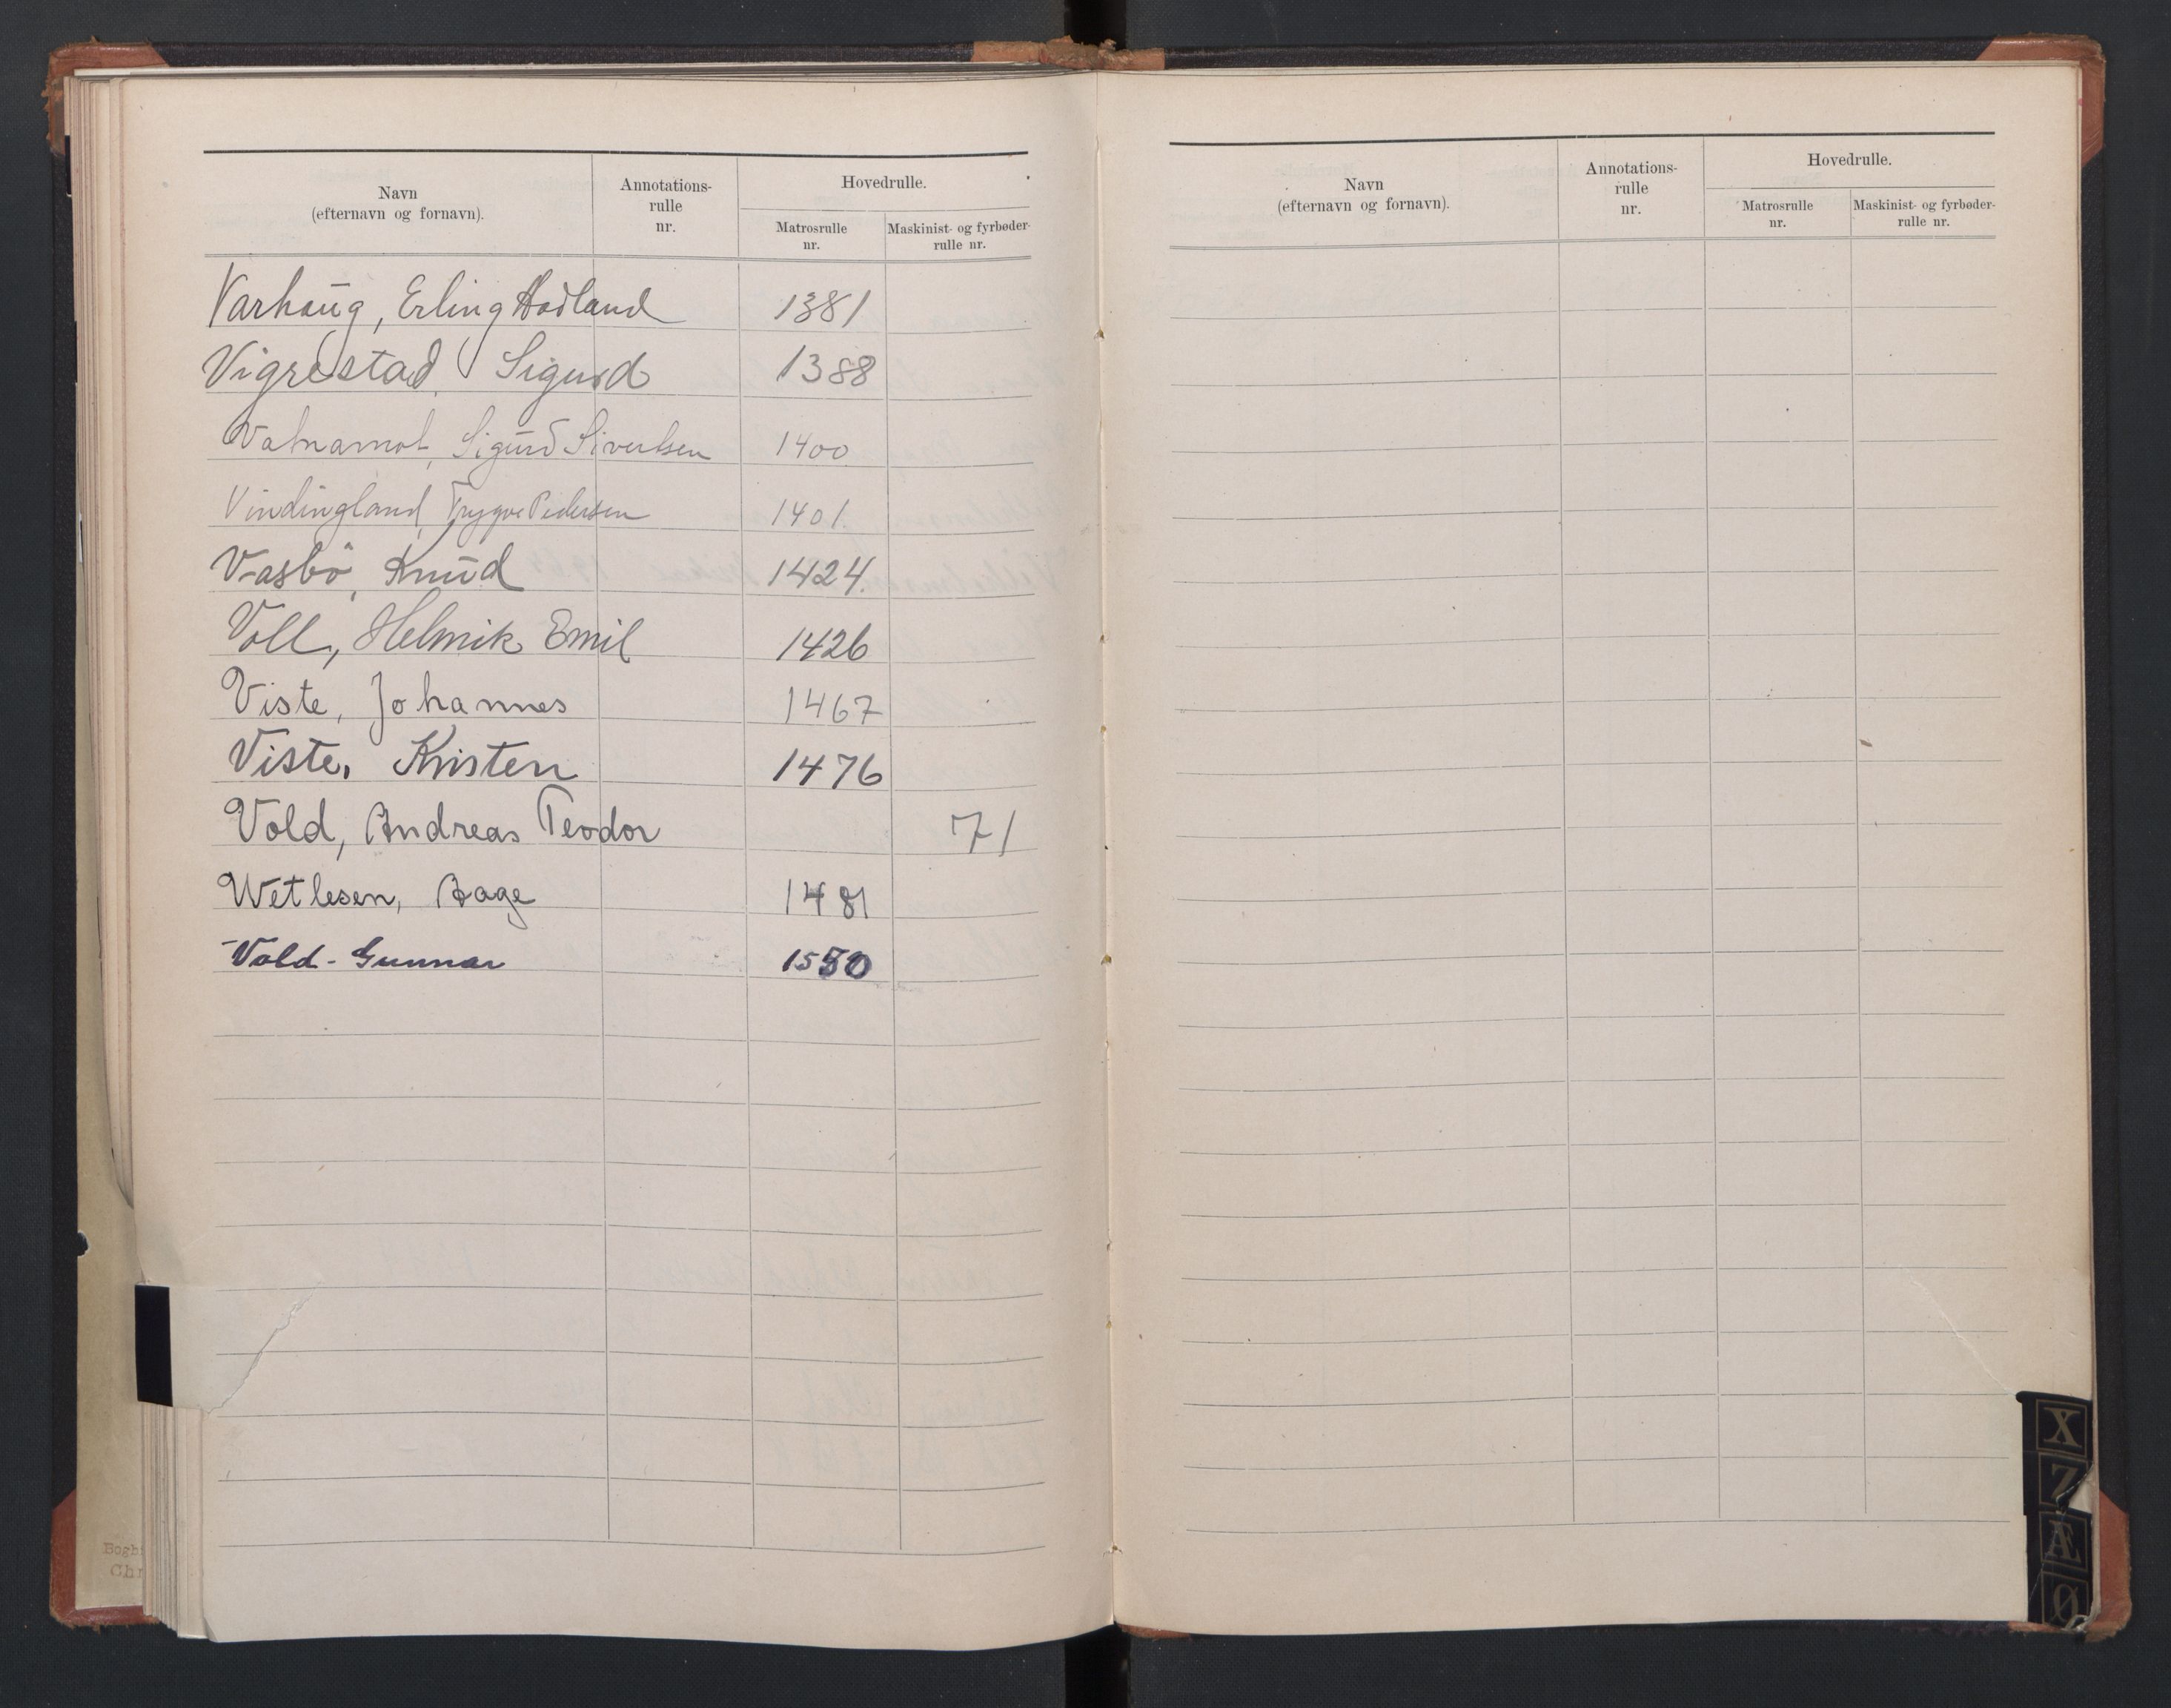 Navn
(efternavn og fornavn).
Annotations-
rulle
nr.
Hovedrulle.
Matrosrulle
nr.
Maskinist- og fyrbøder-
rulle nr.
Varhaug, Erling Hadland 1381
Vigrestad, Sigurd 1388
Vatnamot, Sigurd Sivertsen 1400
Vindingland, Trygve Pedersen 1401.
Vasbö, Knud 1424.
Voll, Helmik Emil 1426
Viste, Johannes 1467
Viste, Kristen 1476
Vold, Andreas Teodor 71
Wetlesen, Aage 1481
Vold- Gunnar 1550
Navn
(efternavn og fornavn).
Annotations-
rulle
nr.
Hovedrulle.
Matrosrulle
nr.
Maskinist- og fyrbøder-
rulle nr.
X
Z
Æ
Ø